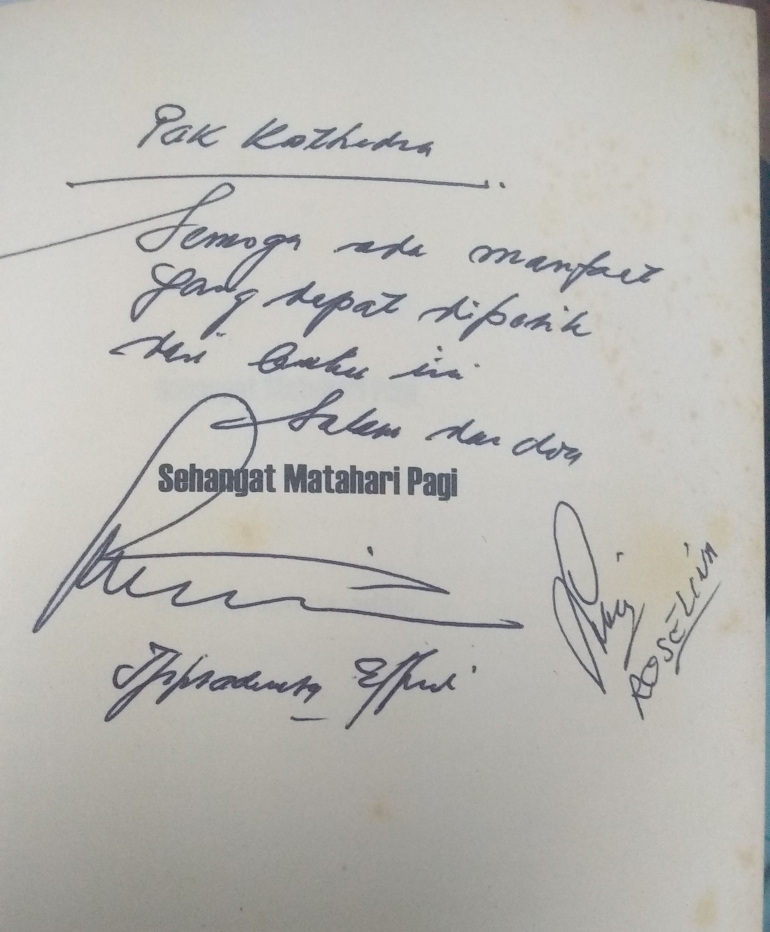 Pak Kathedra
Semoga ada manfaat
yang dapat dipetik
dari buku ini
Salam dan doa
Sehangat Matahari Pagi
Tjiptadinata Effendi
ROSELINA